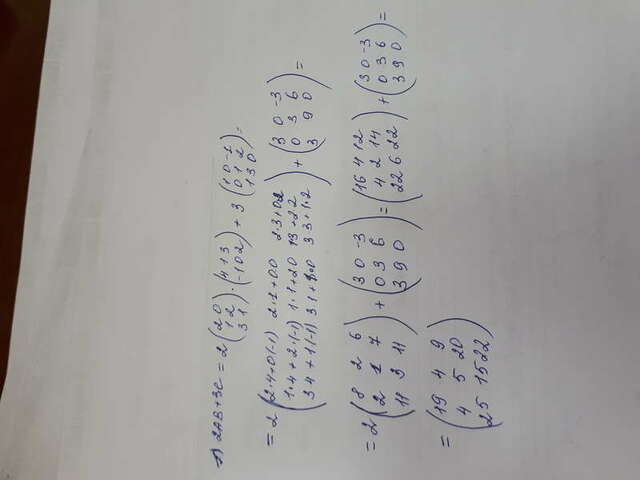 1) 2AB+3C = 2 (2 0 / 1 2 / 3 1) · (4 1 3 / -1 0 2) + 3 (1 0 -1 / 0 1 2 / 1 3 0) =
= 2 (2·4+0(-1) 2·1+0·0 2·3+0·2 / 1·4+2·(-1) 1·1+2·0 1·3+2·2 / 3·4+1(-1) 3·1+1·0 3·3+1·2) + (3 0 -3 / 0 3 6 / 3 9 0) =
= 2 (8 2 6 / 2 1 7 / 11 3 11) + (3 0 -3 / 0 3 6 / 3 9 0) = (16 4 12 / 4 2 14 / 22 6 22) + (3 0 -3 / 0 3 6 / 3 9 0) =
= (19 4 9 / 4 5 20 / 25 15 22)